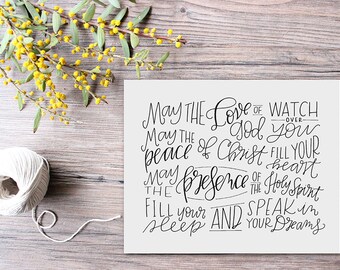 MAY THE Love OF God WATCH OVER You
MAY THE peace of Christ FILL YOUR heart
MAY THE presence OF THE Holy Spirit
FILL your sleep AND SPEAK in YOUR Dreams